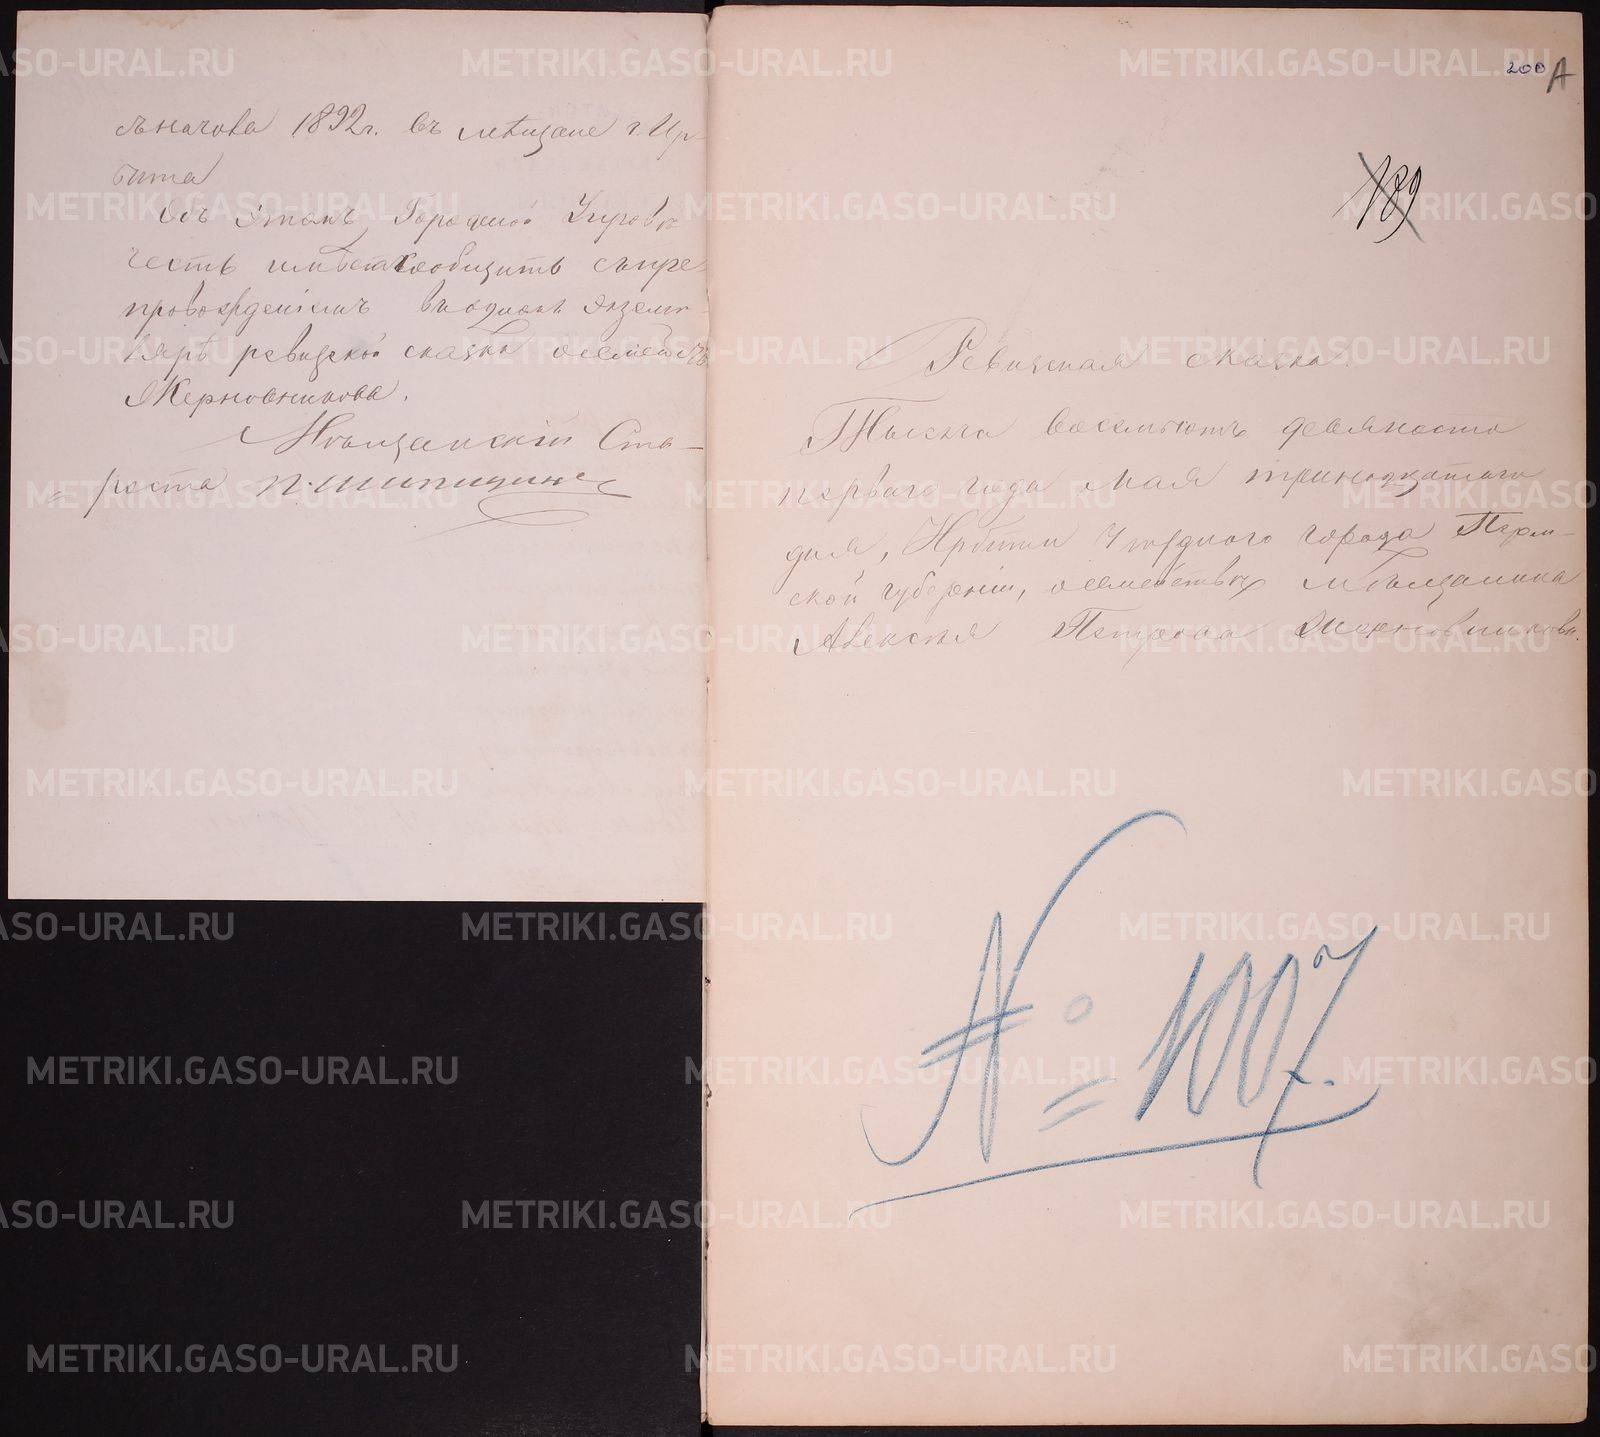 съ начала 1892 г. въ мѣщане г. Ир
бита
Объ этомъ Городской Управѣ
честь имѣетъ сообщить съ пре
провожденіемъ въ одномъ экземп
лярѣ ревизской сказки о семействѣ
Жерновникова.
Мѣщанскій Ста-
= роста П. Шипицинъ
200 А
189
Ревизская сказка.
Тысяча восемьсотъ девяносто
перваго года мая тринадцатаго
дня, Ирбити уѣзднаго города Перм-
ской губерніи, о семействѣ мѣщанина
Алексѣя Петрова Жерновникова.
№ 1007.
METRIKI.GASO-URAL.RU